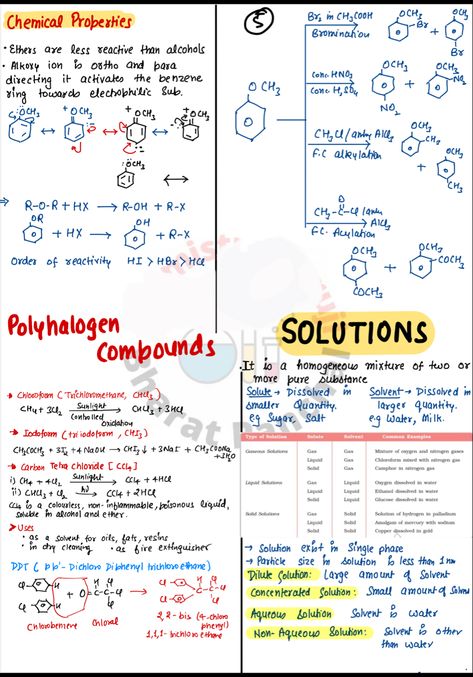 Chemical Properties
• Ethers are less reactive than alcohols
• Alkoxy ion is ortho and para
directing it activates the benzene
ring towards electrophilic sub.
OCH₃
OCH₃
OCH₃
OCH₃
OCH₃
⇒ R-O-R + HX → R-OH + R-X
OR + HX → OH + R-X
Order of reactivity HI > HBr > HCl
5
OCH₃
Br₂ in CH₃COOH
Bromination
OCH₃ Br + OCH₃ Br
conc. HNO₃
conc. H₂SO₄
OCH₃ NO₂ + OCH₃ NO₂
CH₃Cl / anhy AlCl₃
F.C. alkylation
OCH₃ CH₃ + OCH₃ CH₃
O
CH₃-C-Cl / anhy AlCl₃
F.C. Acylation
OCH₃ COCH₃ + OCH₃ COCH₃
Polyhalogen
Compounds
→ Chloroform (Trichloromethane, CHCl₃)
CH₄ + 3Cl₂ Sunlight controlled oxidation → CHCl₃ + 3HCl
→ Iodoform (triiodoform, CHI₃)
→ Carbon Tetrachloride [CCl₄]
i) CH₄ + 4Cl₂ Sunlight → CCl₄ + 4HCl
CCl₄ is a colourless, non-inflammable, poisonous liquid,
soluble in alcohol and ether.
→ Uses
• as a solvent for oils, fats, resins
• in dry cleaning • as fire extinguisher
DDT (p,p'- Dichloro Diphenyl trichloroethane)
Cl H
Cl H + O = C - C - Cl → Cl Cl
Chlorobenzene Chloral
2,2-bis (4-chloro
phenyl)
1,1,1-trichloroethane
SOLUTIONS
It is a homogeneous mixture of two or
more pure substance
Solute → Dissolved in smaller Quantity. eg Sugar, Salt
Solvent → Dissolved in larger quantity. eg Water, Milk.
Type of Solution Solute Solvent Common Examples
Gaseous Solutions Gas Gas Mixture of oxygen and nitrogen gases
Liquid Gas Chloroform mixed with nitrogen gas
Solid Gas Camphor in nitrogen gas
Liquid Solutions Gas Liquid Oxygen dissolved in water
Liquid Liquid Ethanol dissolved in water
Solid Liquid Glucose dissolved in water
Solid Solutions Gas Solid Solution of hydrogen in palladium
Liquid Solid Amalgam of mercury with sodium
Solid Solid Copper dissolved in gold
→ Solution exist in Single phase
→ Particle size in solution is less than 1nm
Dilute Solution: Large amount of Solvent
Concentrated Solution: Small amount of Solvent
Aqueous Solution Solvent is water
Non-Aqueous Solution: Solvent is other
than water